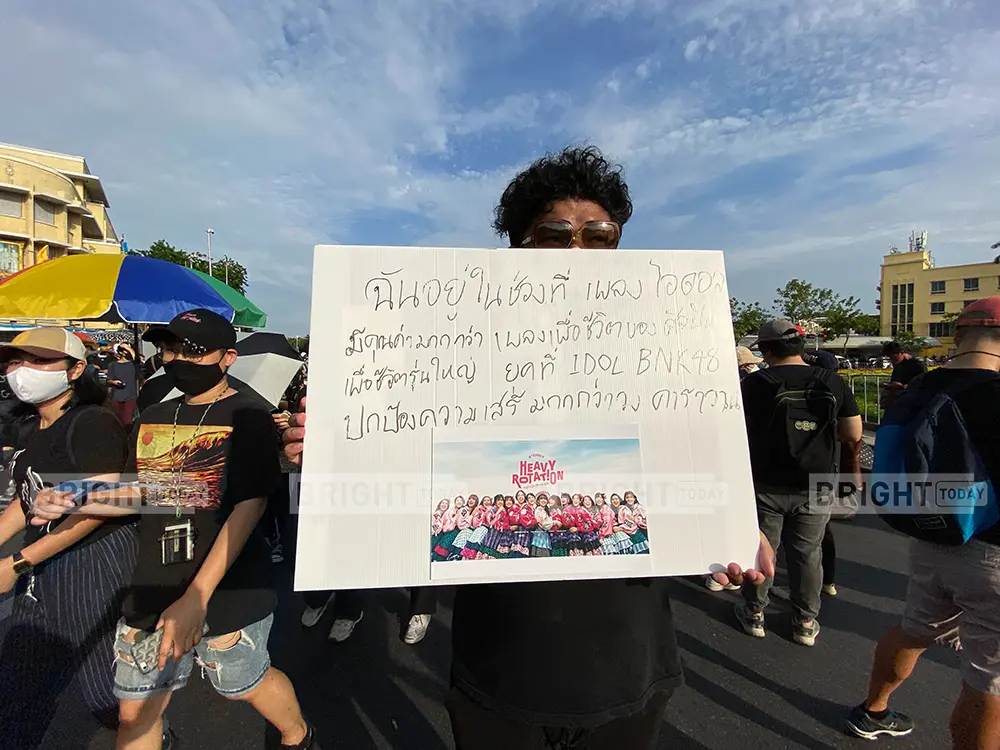 ฉันอยู่ในช่วงที่ เพลง ไอดอล
มีคุณค่ามากกว่า เพลงเพื่อชีวิตของ ศิลปิน
เพื่อชีวิตรุ่นใหญ่ ยุคที่ IDOL BNK48
ปกป้องความเสรี มากกว่าวง คาราวาน
HEAVY
ROTATION
BRIGHT TODAY
BRIGHT TODAY
BRIGHT TODAY
BRIGHT TODAY